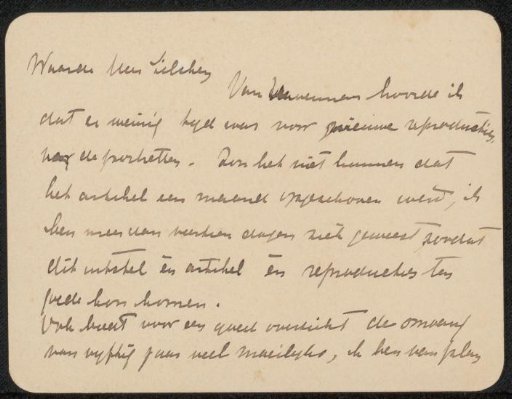 Waarde Heer Zilcken
Van hoorde ik
dat er weinig tijd was voor nieuwe reproducties
der portretten. Zou het niet kunnen dat
het artikel een maand opgeschoven werd, ik
ben meer dan veertien dagen ziek geweest zoodat
dit uitstel èn artikel èn reproducties ten
goede kon komen.
Ook biedt voor een goed overzicht de omvang
van vijftig jaar veel moeilijks, ik ben van plan